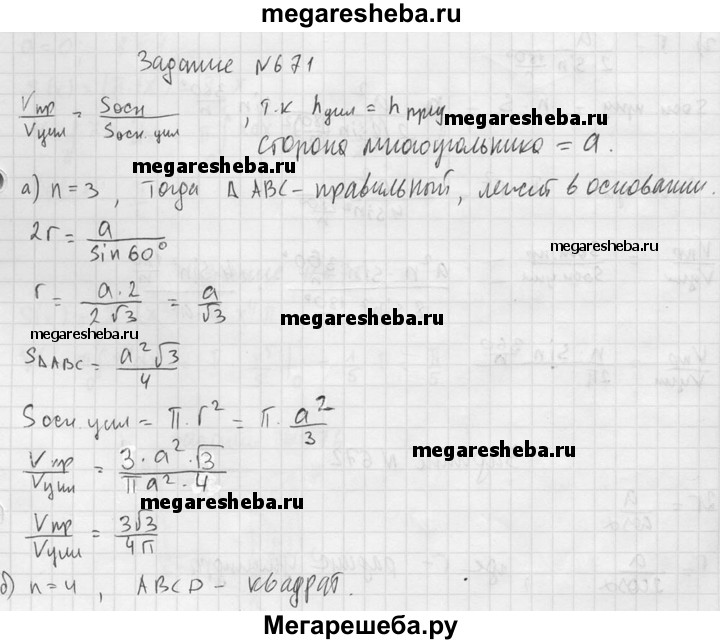 megaresheba.ru
Задание №671
Vпр/Vцил = Sосн/Sосн.цил, т.к hцил = hпред
megaresheba.ru
сторона многоугольника = a.
megaresheba.ru
а) n=3, Тогда Δ ABC - правильный, лежит в основании.
2r = a/sin60°
megaresheba.ru
r = a·2/2√3 = a/√3
megaresheba.ru
megaresheba.ru
SΔABC = a²√3/4
Sосн цил = π·r² = π·a²/3
Vпр/Vцил = 3·a²·√3/πa²·4
megaresheba.ru
megaresheba.ru
Vпр/Vцил = 3√3/4π
б) n=4, ABCD - квадрат.
Мегарешеба.ру